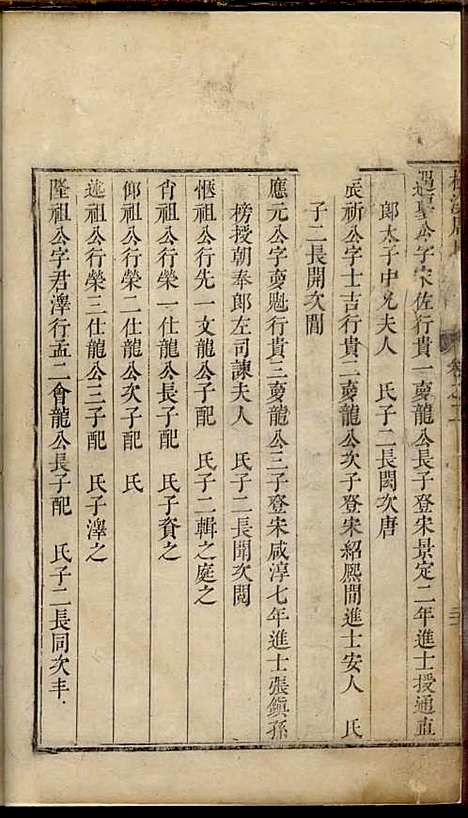 卷之二
遇聖公字宋佐行貴一夔龍公長子登宋景定二年進士授通直
郎太子中允夫人　氏子二長閎次唐
辰祈公字士吉行貴二夔龍公次子登宋紹熙間進士安人　氏
子二長開次誾
應元公字夔魁行貴三夔龍公三子登宋咸淳七年進士張鎭孫
榜授朝奉郎左司諫夫人　氏子二長聞次閱
愜祖公行先一文龍公子配　氏子二輯之庭之
肖祖公行榮一仕龍公長子配　氏子賚之
仰祖公行榮二仕龍公次子配　氏
述祖公行榮三仕龍公三子配　氏子澤之
隆祖公字君澤行孟二會龍公長子配　氏子二長同次丰